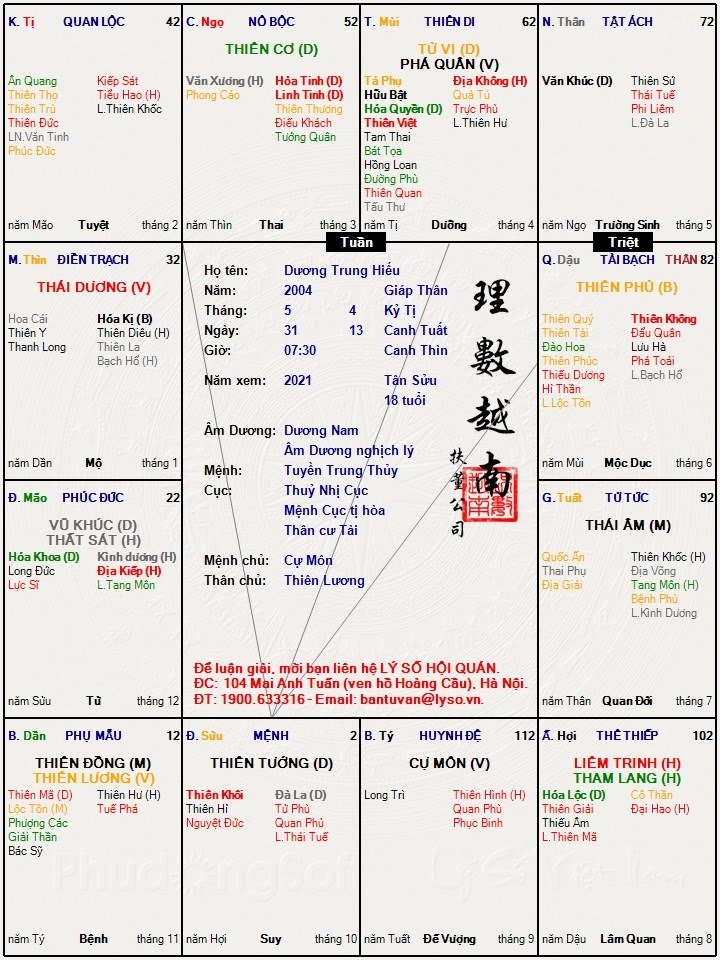 K. Tị QUAN LỘC 42
Ân Quang Kiếp Sát
Thiên Thọ Tiểu Hao (H)
Thiên Trù L.Thiên Khốc
Thiên Đức
LN.Văn Tinh
Phúc Đức
năm Mão Tuyệt tháng 2
C. Ngọ NÔ BỘC 52
THIÊN CƠ (D)
Văn Xương (H) Hỏa Tinh (D)
Phong Cáo Linh Tinh (D)
Thiên Thương
Điếu Khách
Tướng Quân
năm Thìn Thai tháng 3
T. Mùi THIÊN DI 62
TỬ VI (D)
PHÁ QUÂN (V)
Tả Phụ Địa Không (H)
Hữu Bật Quả Tú
Hóa Quyền (D) Trực Phù
Thiên Việt L.Thiên Hư
Tam Thai
Bát Tọa
Hồng Loan
Đường Phù
Thiên Quan
Tấu Thư
năm Tị Dưỡng tháng 4
N. Thân TẬT ÁCH 72
Văn Khúc (D) Thiên Sứ
Thái Tuế
Phi Liêm
L.Đà La
năm Ngọ Trường Sinh tháng 5
Tuần
Triệt
M. Thìn ĐIỀN TRẠCH 32
THÁI DƯƠNG (V)
Hoa Cái Hóa Kị (B)
Thiên Y Thiên Diêu (H)
Thanh Long Thiên La
Bạch Hổ (H)
năm Dần Mộ tháng 1
Họ tên: Dương Trung Hiếu
Năm: 2004 Giáp Thân
Tháng: 5 4 Kỷ Tị
Ngày: 31 13 Canh Tuất
Giờ: 07:30 Canh Thìn
Năm xem: 2021 Tân Sửu
18 tuổi
Âm Dương: Dương Nam
Âm Dương nghịch lý
Mệnh: Tuyền Trung Thủy
Cục: Thuỷ Nhị Cục
Mệnh Cục tị hòa
Thân cư Tài
Mệnh chủ: Cự Môn
Thân chủ: Thiên Lương
理數越南
扶董公司
Để luận giải, mời bạn liên hệ LÝ SỐ HỘI QUÁN.
ĐC: 104 Mai Anh Tuấn (ven hồ Hoàng Cầu), Hà Nội.
ĐT: 1900.633316 - Email: bantuvan@lyso.vn.
Q. Dậu TÀI BẠCH THÂN 82
THIÊN PHỦ (B)
Thiên Quý Thiên Không
Thiên Tài Đẩu Quân
Đào Hoa Lưu Hà
Thiên Phúc Phá Toái
Thiếu Dương L.Bạch Hổ
Hỉ Thần
L.Lộc Tồn
năm Mùi Mộc Dục tháng 6
Đ. Mão PHÚC ĐỨC 22
VŨ KHÚC (D)
THẤT SÁT (H)
Hóa Khoa (D) Kình dương (H)
Long Đức Địa Kiếp (H)
Lực Sĩ L.Tang Môn
năm Sửu Tử tháng 12
G. Tuất TỬ TỨC 92
THÁI ÂM (M)
Quốc Ấn Thiên Khốc (H)
Thai Phụ Địa Võng
Địa Giải Tang Môn (H)
Bệnh Phù
L.Kình Dương
năm Thân Quan Đới tháng 7
B. Dần PHỤ MẪU 12
THIÊN ĐỒNG (M)
THIÊN LƯƠNG (V)
Thiên Mã (D) Thiên Hư (H)
Lộc Tồn (M) Tuế Phá
Phượng Các
Giải Thần
Bác Sỹ
năm Tý Bệnh tháng 11
Đ. Sửu MỆNH 2
THIÊN TƯỚNG (D)
Thiên Khôi Đà La (D)
Thiên Hỉ Tử Phù
Nguyệt Đức Quan Phủ
L.Thái Tuế
năm Hợi Suy tháng 10
B. Tý HUYNH ĐỆ 112
CỰ MÔN (V)
Long Trì Thiên Hình (H)
Quan Phù
Phục Binh
năm Tuất Đế Vượng tháng 9
Ấ. Hợi THÊ THIẾP 102
LIÊM TRINH (H)
THAM LANG (H)
Hóa Lộc (D) Cô Thần
Thiên Giải Đại Hao (H)
Thiếu Âm
L.Thiên Mã
năm Dậu Lâm Quan tháng 8
Phudongsoft
Lý Số Việt Nam